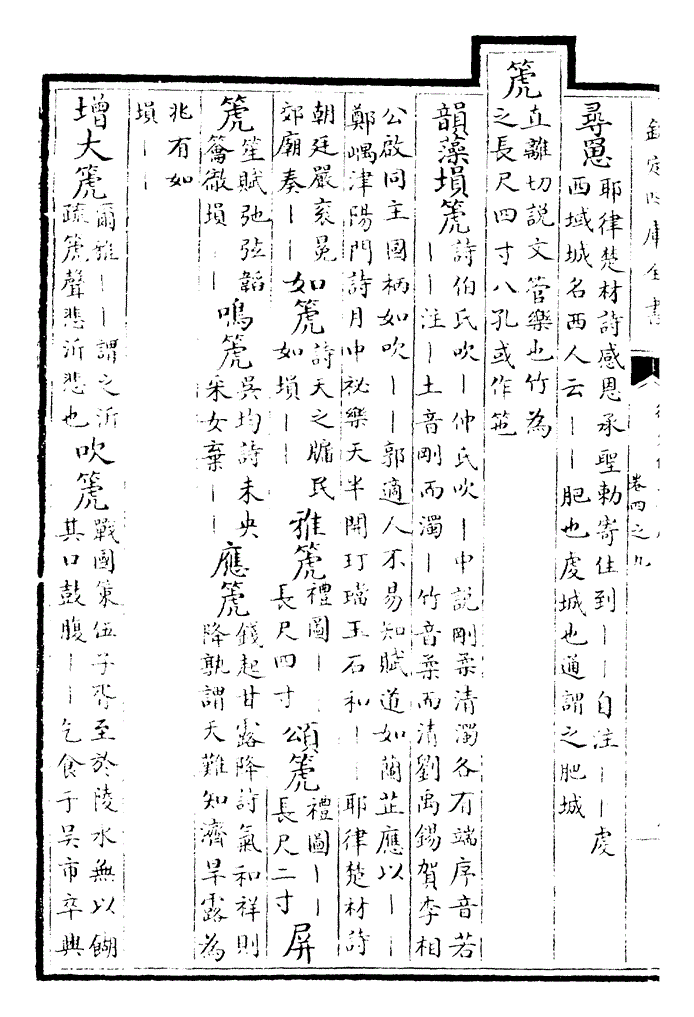 欽定四庫全書
卷四之九
尋罳
耶律楚材詩感恩承聖勅寄住到丨丨自注丨丨虔
西域城名西人云丨丨肥也虔城也通謂之肥城
箎
直離切說文管樂也竹為
之長尺四寸八孔或作竾
韻藻塤箎
詩伯氏吹丨仲氏吹丨中說剛柔清濁各有端序音若
丨丨注丨土音剛而濁丨竹音柔而清劉禹錫賀李相
公啟同主國柄如吹丨丨郭適人不易知賦道如蘭芷應以丨丨
鄭嵎津陽門詩月中祕樂天半開玎璫玉石和丨丨耶律楚材詩
朝廷嚴袞冕
郊廟奏丨丨
如箎
詩天之牖民
如塤丨丨
雅箎
禮圖丨丨
長尺四寸
頌箎
禮圖丨丨
長尺二寸
屏
箎
笙賦弛弦韜
籥徹塤丨丨
鳴箎
吳均詩未央
采女棄丨丨
應箎
錢起甘露降詩氣和祥則
降孰謂天難知濟旱露為
兆有如
塤丨丨
增大箎
爾雅丨丨謂之沂
疏箎聲悲沂悲也
吹箎
戰國策伍子胥至於陵水無以餬
其口鼓腹丨丨乞食于吳市卒興